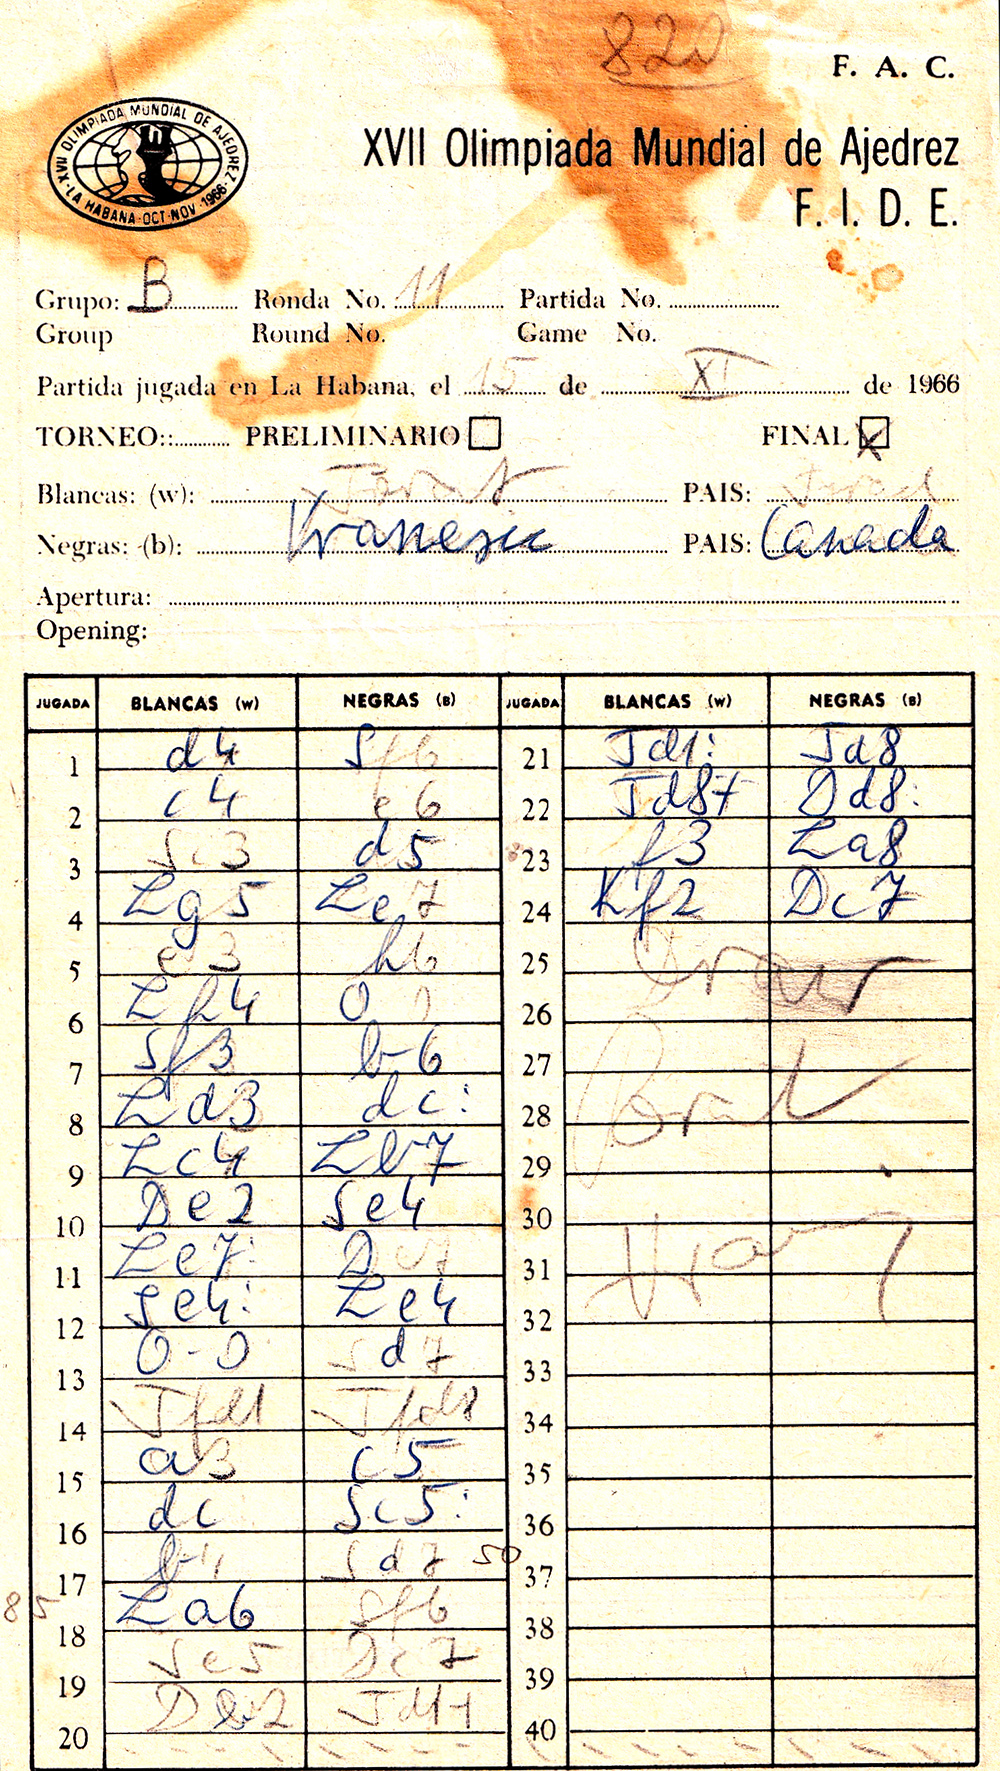 820
F. A. C.
XVII OLIMPIADA MUNDIAL DE AJEDREZ
LA HABANA-OCT-NOV-1966
XVII Olimpiada Mundial de Ajedrez
F. I. D. E.
Grupo: B Ronda No. 11 Partida No.
Group Round No. Game No.
Partida jugada en La Habana, el 15 de XI de 1966
TORNEO:: PRELIMINARIO FINAL X
Blancas: (w): PAIS: Israel
Negras: (b): Vranesic PAIS: Canada
Apertura:
Opening:
JUGADA BLANCAS (W) NEGRAS (B) JUGADA BLANCAS (W) NEGRAS (B)
1 d4 Sf6 21 Td1: Td8
2 c4 e6 22 Td8+ Dd8:
3 Sc3 d5 23 f3 La8
4 Lg5 Le7 24 Kf2 Dc7
5 e3 h6 25 Draw
6 Lh4 0 0 26
7 Sf3 b6 27
8 Ld3 dc: 28
9 Lc4 Lb7 29
10 De2 Se4 30
11 Le7: D 31
12 Se4: Le4 32
13 0-0 Sd7 33
14 Tfd1 Tfd8 34
15 a3 c5 35
16 dc Sc5: 36
17 b4 Sd7 50 37
18 La6 Sf6 38
19 Se5 Dc7 39
20 Db2 Td1+ 40
85